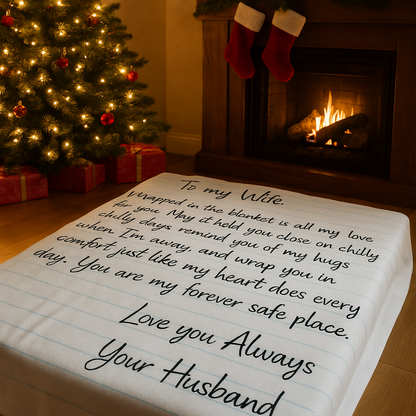 To my Wife.
Wrapped in the blonket is all my love
for you. May it held you close on chilly
chilly days remind you of my hugs
when I'm away, and wrap you in
comfort just like my heart does every
day. You are my forever safe place.
Love you Always
Your Husband